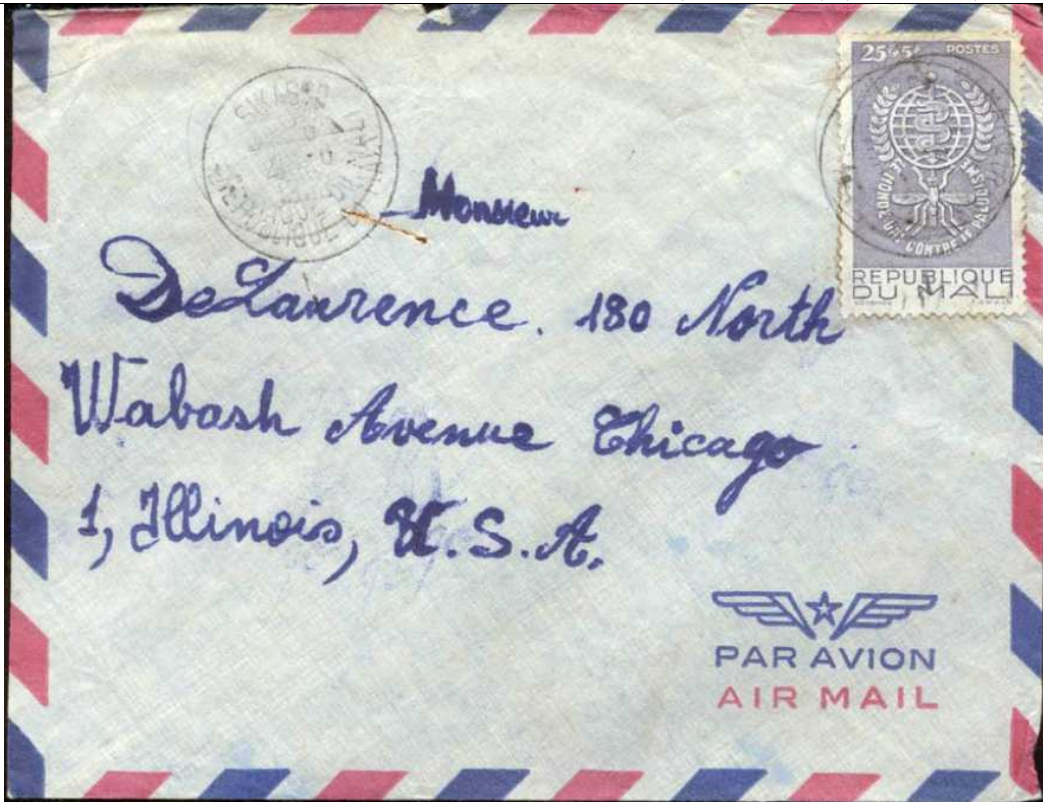 25F+5F POSTES
SIKASSO
REPUBLIQUE DU MALI
LE MONDE UNI CONTRE LE PALUDISME
REPUBLIQUE
DU MALI
Monsieur
DeLaurence. 180 North
Wabash Avenue Chicago
1, Illinois, U.S.A.
PAR AVION
AIR MAIL